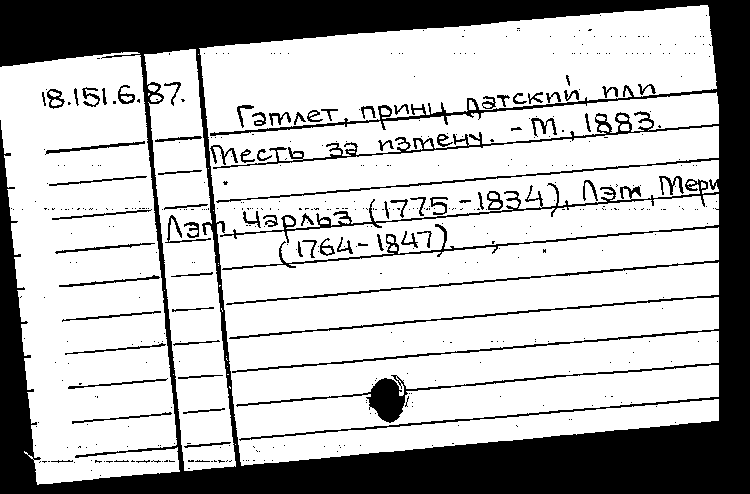 18.151.6.87.
Гамлет, принц Датский, или
Месть за измену. - М., 1883.
Лэм, Чарльз (1775-1834), Лэм, Мери
(1764-1847).